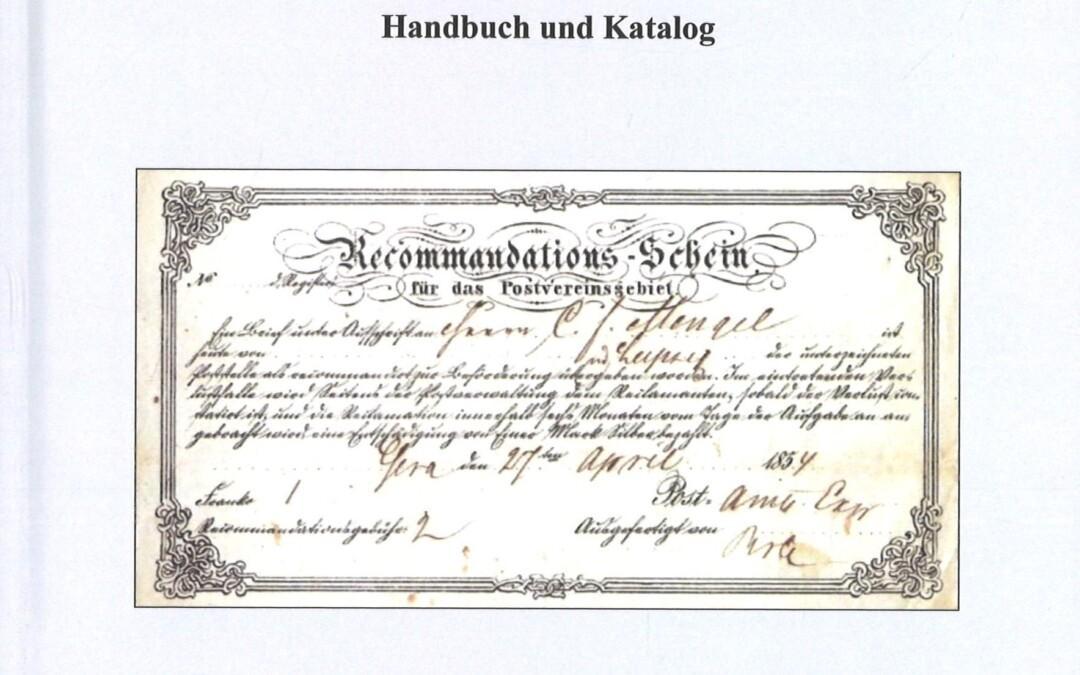 Handbuch und Katalog
Recommandations-Schein
für das Postvereinsgebiet.
No d. Register
Ein Brief unter Aufschrift an Herrn C. F. Mengel ist
heute von in Leipzig der unterzeichneten
Poststelle als recommandirt zur Beförderung übergeben worden. Im eintretenden Ver-
lustfalle wird Seitens der Postverwaltung dem Reclamanten, sobald der Verlust con-
statirt ist, und die Reclamation innerhalb sechs Monaten vom Tage der Aufgabe an an-
gebracht wird, eine Entschädigung von Einer Mark Silber bezahlt.
Gera den 27ten April 1854
Franko 1 Post-Amts
Recommandationsgebühr: 2 Ausgefertigt von